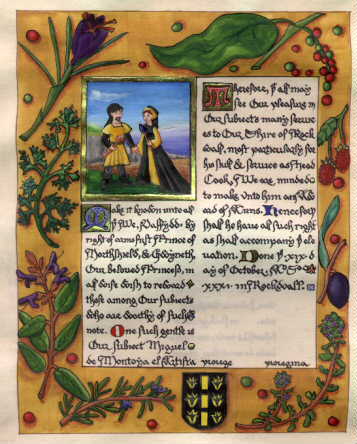 Make it known unto all
yt We, Dafydd, by
right of arms first Prince of
Northshield, & Gwyneth,
Our beloved Princess, in
all wish to reward
those among Our subjects
who are worthy of suche
note. One such gentle is
Our subject Miguel
de Montoya el Artista
Therefore, yt all may
see Our pleasure in
Our subjects many servic
es to Our Shire of Rock
wall, most particularly for
his skill & service as Head
Cook, We are minded
to make unto him an Aw
ard of Arms. Henceforth
shall he have all such right
as shall accompany ye ele
vation. Done ye xix d
ay of October, AS
in Rockwall.